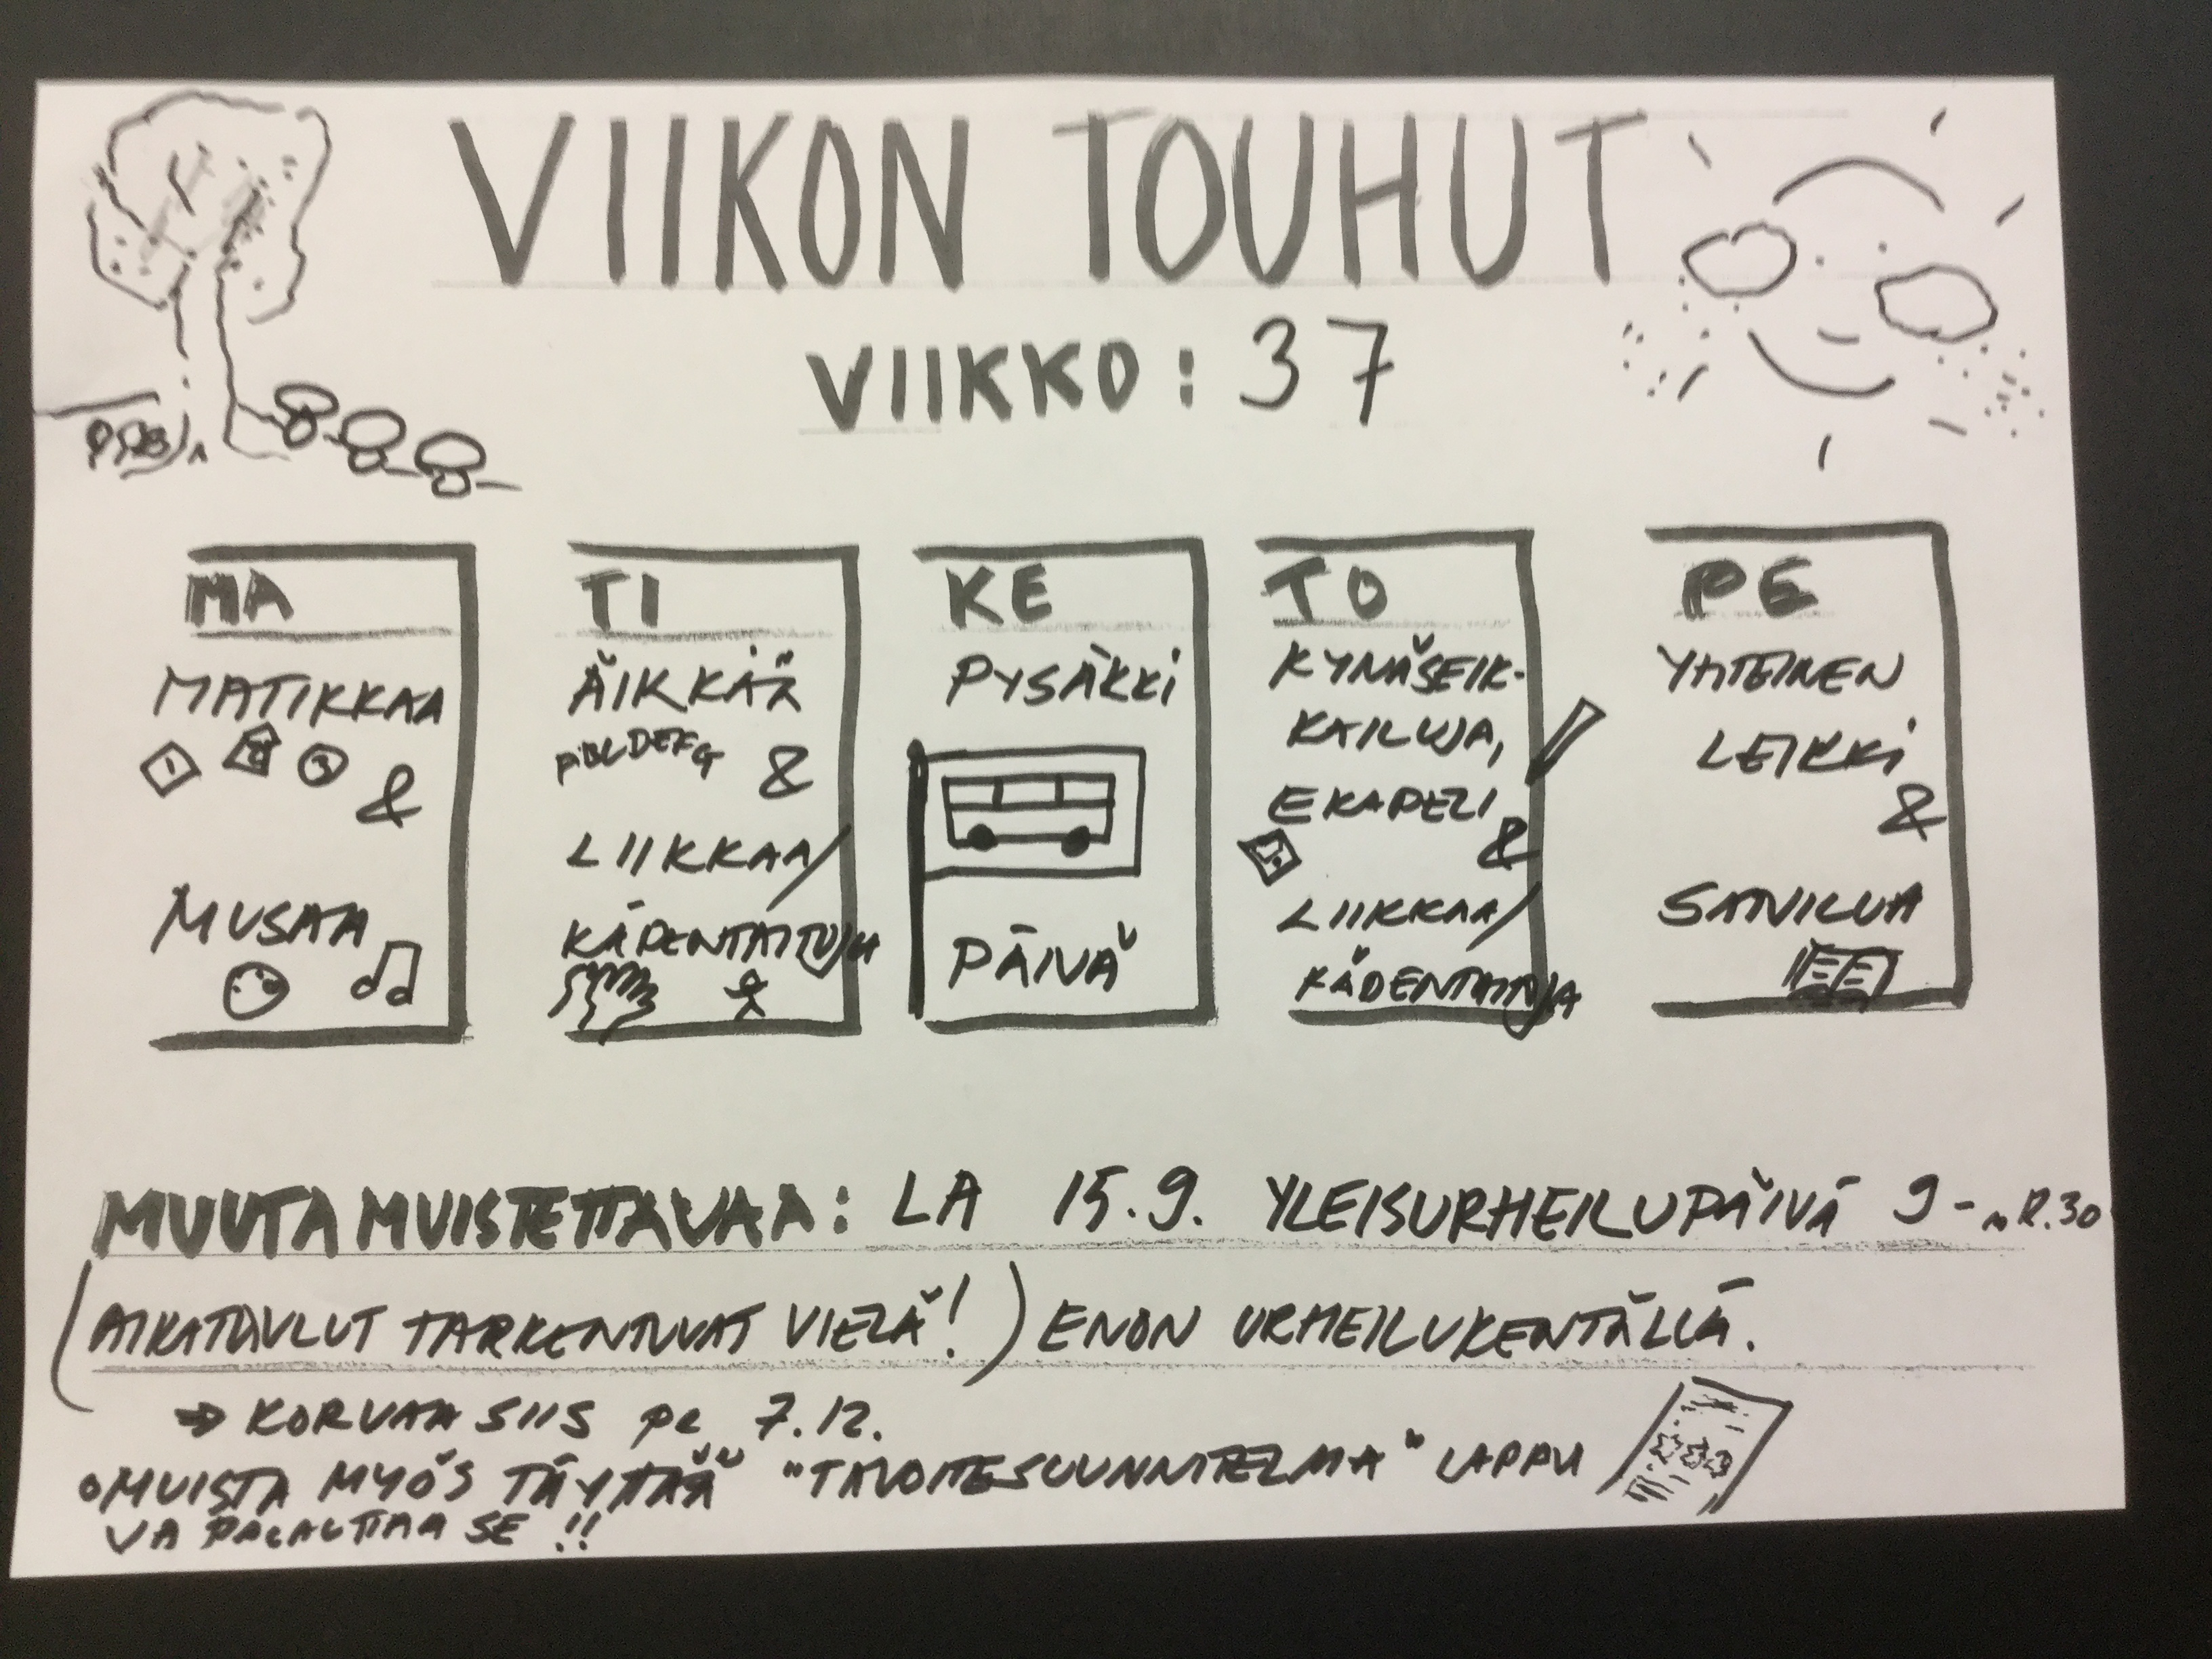 VIIKON TOUHUT
VIIKKO: 37
MA
MATIKKAA
&
MUSAA
TI
ÄIKKÄÄ
ABCDEFG &
LIIKKAA/
KÄDENTAITOJA
KE
PYSÄKKI
PÄIVÄ
TO
KYNÄSEIK-
KAILUJA,
EKAPELI
&
LIIKKAA/
KÄDENTAITOJA
PE
YHTEINEN
LEIKKI
&
SATUILUA
MUUTA MUISTETTAVAA: LA 15.9. YLEISURHEILUPÄIVÄ 9-n.12.30
(AIKATAULUT TARKENTUVAT VIELÄ!) ENON URHEILUKENTÄLLÄ.
⇒ KORVAA SIIS pe 7.12.
○MUISTA MYÖS TÄYTTÄÄ "TAVOITESUUNNITELMA" LAPPU
JA PALAUTTAA SE!!